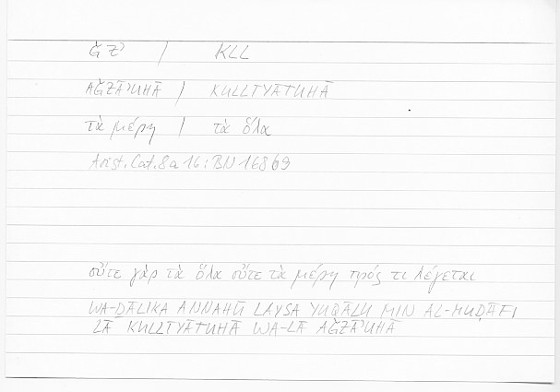 ǦZʾ / KLL
AǦZĀʾUHĀ / KULLIYĀTUHĀ
τὰ μέρη / τὰ ὅλα
Arist. Cat. 8a 16 : BN 168b9
οὔτε γὰρ τὰ ὅλα οὔτε τὰ μέρη πρός τι λέγεται
WA-ḎĀLIKA ANNAHŪ LAYSA YUQĀLU MIN AL-MUḌĀFI
LĀ KULLIYĀTUHĀ WA-LĀ AǦZĀʾUHĀ